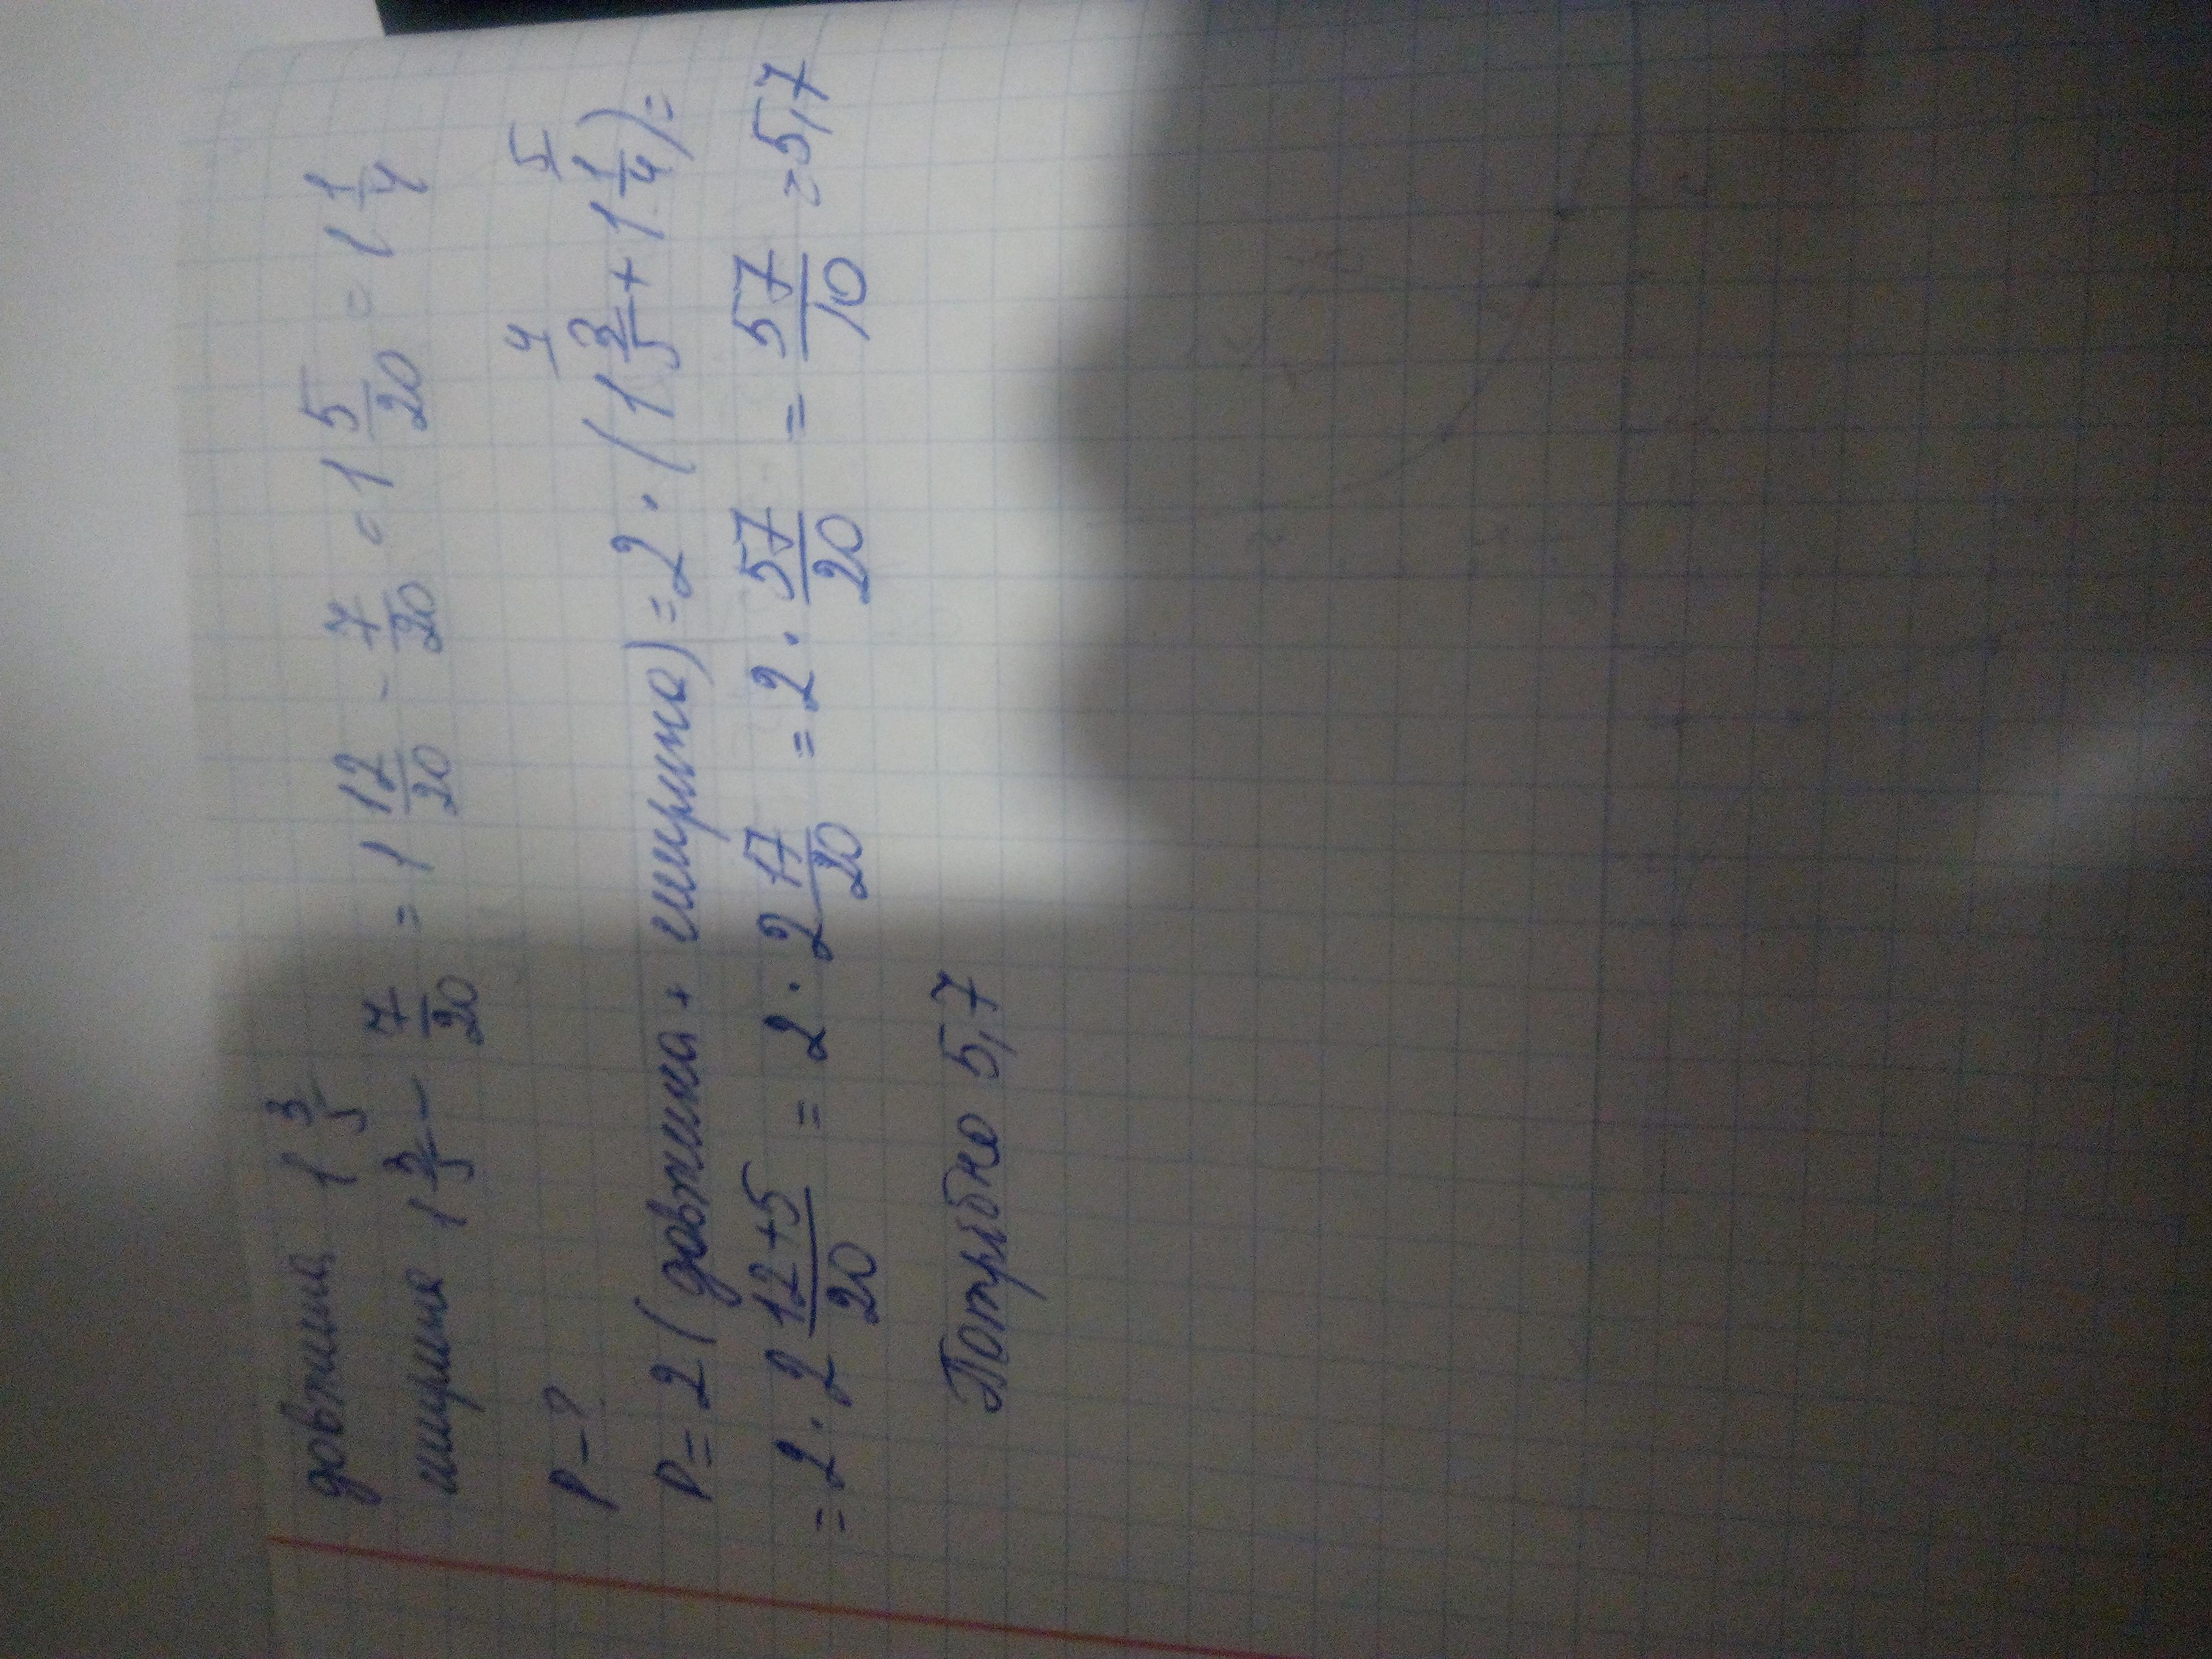 довжина 1 3/5
ширина 1 3/5 - 7/20 = 1 12/20 - 7/20 = 1 5/20 = 1 1/4
P - ?
P = 2 (довжина + ширина) = 2 · (1 3/5 ⁴ + 1 1/4 ⁵) =
= 2 · 2 12+5/20 = 2 · 2 17/20 = 2 · 57/20 = 57/10 = 5,7
Потрібно 5,7